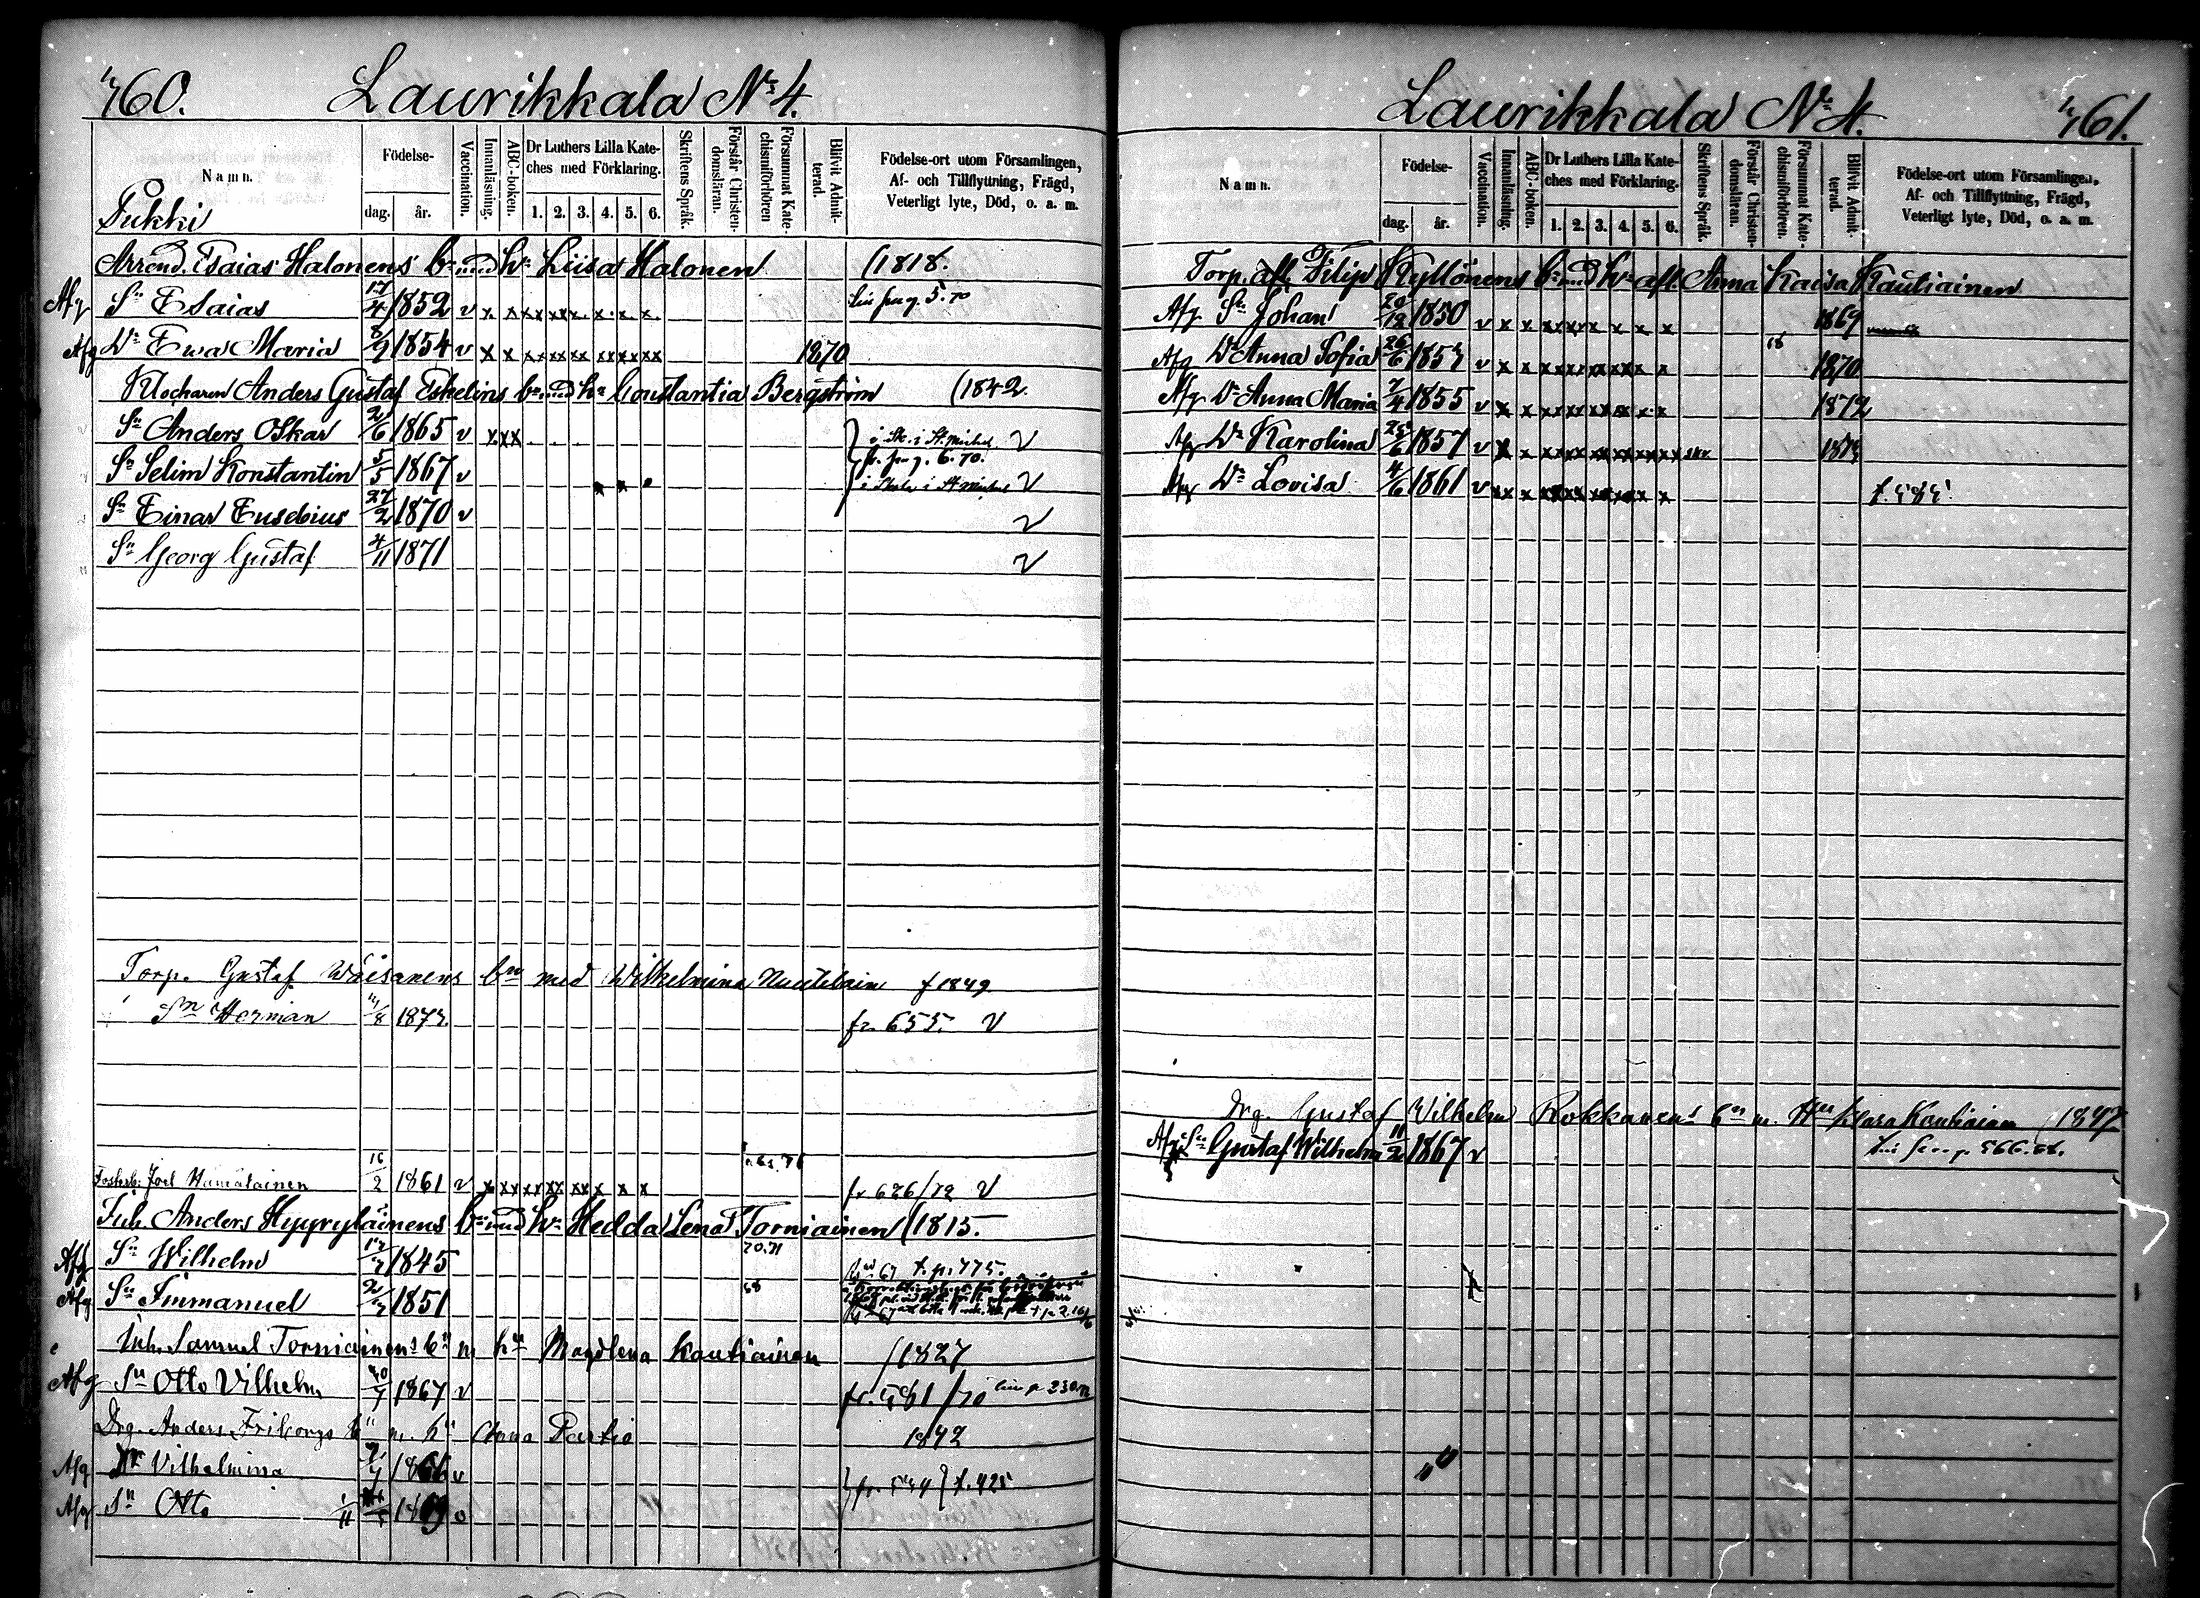 460. Laurikkala No 4.
Namn.
Födelse-
dag. år.
Vaccination.
Innanläsning.
ABC-boken.
Dr Luthers Lilla Kate-
ches med Förklaring.
1. 2. 3. 4. 5. 6.
Skriftens Språk.
Förstår Christen-
domsläran.
Försummat Kate-
chismiförhören
Blifvit Admit-
terad.
Födelse-ort utom Församlingen,
Af- och Tillflyttning, Frägd,
Veterligt lyte, Död, o. a. m.
Pukki
Arrend. Esaias Halonens bn med hu Liisa Halonen (1818.
Afg Sn Esaias 17/4 1852 v x x x x x x x x x
Afg Dr Ewa Maria 1854 v x x x x x x x x x x x x 1870
Klockaren Anders Gustaf Eskelins bn med hu Constantia Bergström (1842.
Sn Anders Oskar 1865 v x x x i Sk. i St. Michel v
Sn Selim Konstantin 5/5 1867 v fr. pag. 6. 70. v
Sn Einar Eusebius 27/2 1870 v v
Sn Georg Gustaf 4/11 1871 v
Torp. Gustaf Wäisänens bn med Wilhelmina f 1849
Sn Herman 187 fr. 655. v
Fosterb. Joel Hämäläinen 16/2 1861 v x x x x x x x x x x fr 626/72 v
Inh. Anders Hyyryläinens bn med hu Hedda Lena Torniainen (1815.
70.71
Afg Sn Wilhelm 1845 t. p. 775.
Afg Sn Immanuel 1851 68
Inh. Samuel Torniainens bn m hu Magdlena Kautiainen (1827
Afg Sn Otto Vilhelm 1867 v
Drg. Anders Friborgs bn m. hu Anna Partio 1842
Afg Dr Vilhelmina 1866 v t. 425
Afg Sn Otto 1869 v
Laurikkala No 4. 461.
Namn.
Födelse-
dag. år.
Vaccination.
Innanläsning.
ABC-boken.
Dr Luthers Lilla Kate-
ches med Förklaring.
1. 2. 3. 4. 5. 6.
Skriftens Språk.
Förstår Christen-
domsläran.
Försummat Kate-
chismiförhören.
Blifvit Admit-
terad.
Födelse-ort utom Församlingen,
Af- och Tillflyttning, Frägd,
Veterligt lyte, Död, o. a. m.
Torp. afl. Filip Kyllönens bn med hu afl. Anna Kaisa Kautiainen
Afg Sn Johan 1850 v x x x x x x x x x x 1869
Afg Dr Anna Sofia 26/6 185 v x x x x x x x x x x 1870
Afg Dr Anna Maria 1855 v x x x x x x x x x x 1872
Afg Dr Karolina 1857 v x x x x x x x x x x
Afg Dr Lovisa 4/6 1861 v x x x x x x x x x x
Drg. Gustaf Wilhelm Rokkanens bn m. hu Klara Kautiainen (1842
Afg Sn Gustaf Wilhelm 11/2 1867 v